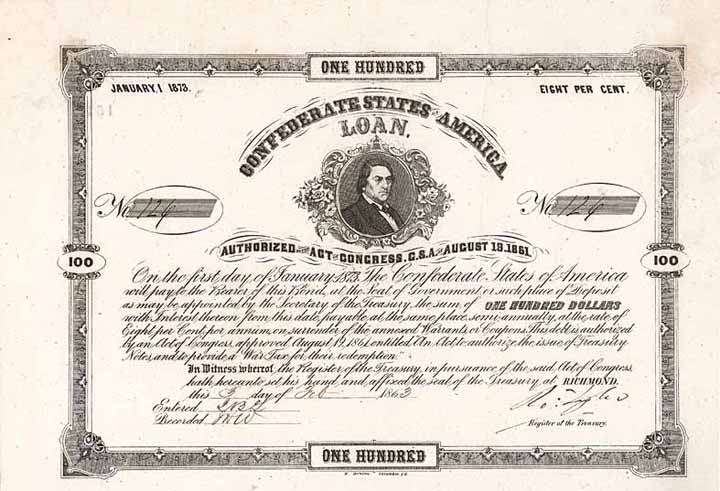 ONE HUNDRED
JANUARY, 1 1873.
EIGHT PER CENT.
CONFEDERATE STATES OF AMERICA
LOAN,
No 124
No 124
AUTHORIZED BY THE ACT OF CONGRESS, C.S.A. OF AUGUST 19. 1861.
100
100
On the first day of January 1873, The Confederate States of America
will pay to the Bearer of this Bond, at the Seat of Government or such place of Deposit
as may be appointed by the Secretary of the Treasury, the sum of ONE HUNDRED DOLLARS
with Interest thereon from this date, payable at the same place, semi-annually, at the rate of
Eight per Cent. per annum, on surrender of the annexed Warrants or Coupons. This debt is authorized
by an Act of Congress, approved August 19, 1861, entitled "An Act to authorize the issue of Treasury
Notes, and to provide a War Tax for their redemption."
In Witness whereof, the Register of the Treasury, in pursuance of the said Act of Congress,
hath hereunto set his hand and affixed the seal of the Treasury, at RICHMOND,
this 3 day of Feb 1863
Entered
Recorded
Ro: Tyler
Register of the Treasury.
ONE HUNDRED
COLUMBIA S.C.